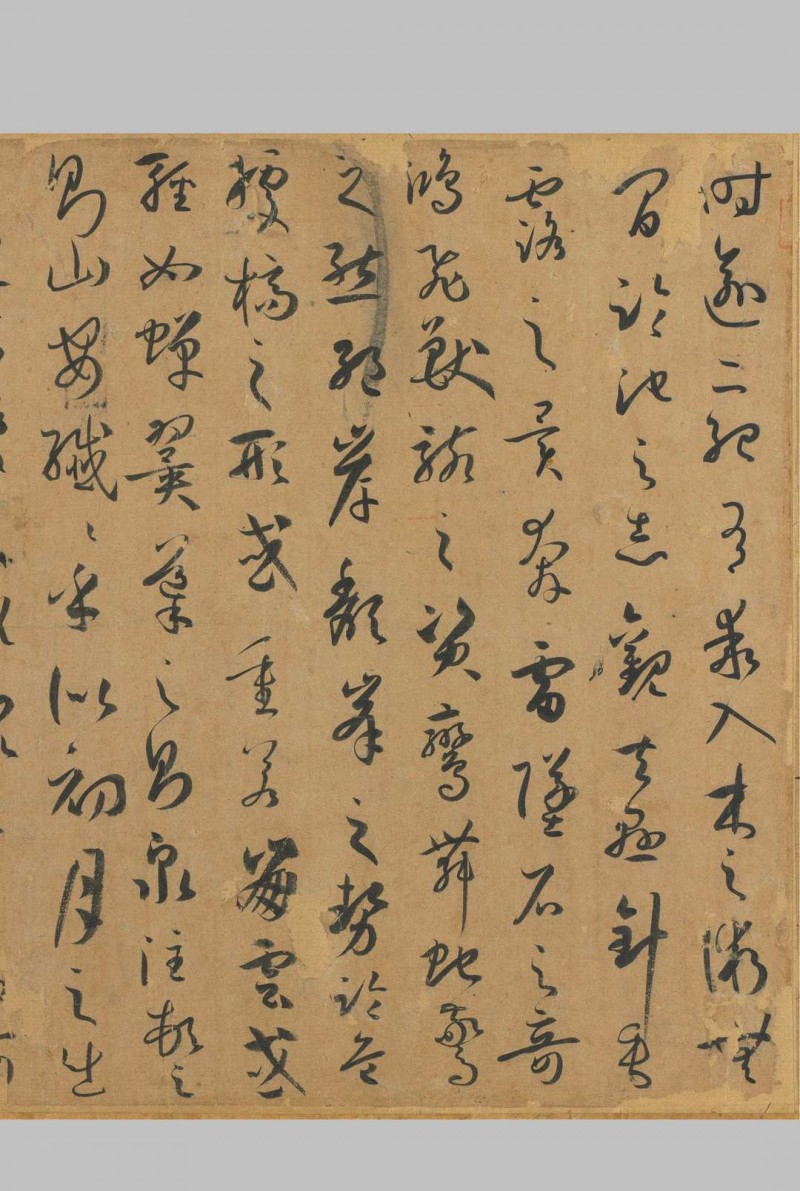 時逾二紀有乖入木之術無
間臨池之志觀夫懸針垂
露之異奔雷墜石之奇
鴻飛獸駭之資鸞舞蛇驚
之態絕岸頹峯之勢臨危
據槁之形或重若崩雲或
輕如蟬翼導之則泉注頓之
則山安纖〻乎似初月之出